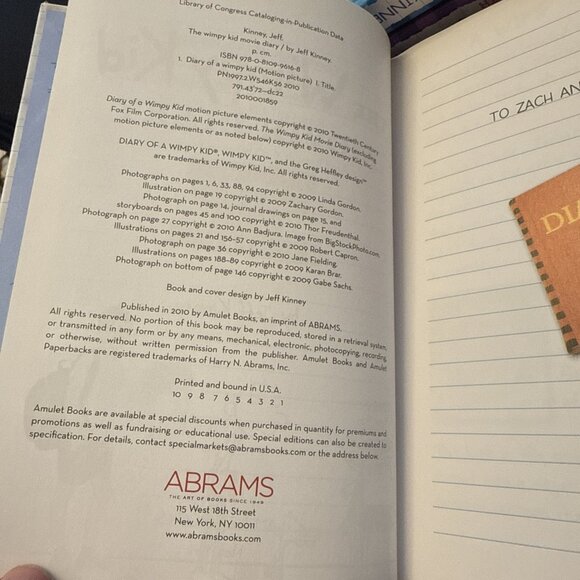 Library of Congress Cataloging-in-Publication Data
Kinney, Jeff.
The wimpy kid movie diary / by Jeff Kinney.
p. cm.
ISBN 978-0-8109-9616-8
1. Diary of a wimpy kid (Motion picture) I. Title.
PN1997.2.W546K56 2010
791.43'72—dc22
2010001859
Diary of a Wimpy Kid motion picture elements copyright © 2010 Twentieth Century
Fox Film Corporation. All rights reserved. The Wimpy Kid Movie Diary (excluding
motion picture elements or as noted below) copyright © 2010 Wimpy Kid, Inc.
DIARY OF A WIMPY KID®, WIMPY KID™, and the Greg Heffley design™
are trademarks of Wimpy Kid, Inc. All rights reserved.
Photographs on pages 1, 6, 33, 88, 94 copyright © 2009 Linda Gordon.
Illustration on page 19 copyright © 2009 Zachary Gordon.
Photograph on page 14, journal drawings on page 15, and
storyboards on pages 45 and 100 copyright © 2010 Thor Freudenthal.
Photograph on page 27 copyright © 2010 Ann Badjura. Image from BigStockPhoto.com.
Illustrations on pages 21 and 156-57 copyright © 2009 Robert Capron.
Photograph on page 36 copyright © 2010 Jane Fielding.
Illustrations on pages 188-89 copyright © 2009 Karan Brar.
Photograph on bottom of page 146 copyright © 2009 Gabe Sachs.
Book and cover design by Jeff Kinney
Published in 2010 by Amulet Books, an imprint of ABRAMS.
All rights reserved. No portion of this book may be reproduced, stored in a retrieval system,
or transmitted in any form or by any means, mechanical, electronic, photocopying, recording,
or otherwise, without written permission from the publisher. Amulet Books and Amulet
Paperbacks are registered trademarks of Harry N. Abrams, Inc.
Printed and bound in U.S.A.
10 9 8 7 6 5 4 3 2 1
Amulet Books are available at special discounts when purchased in quantity for premiums and
promotions as well as fundraising or educational use. Special editions can also be created to
specification. For details, contact specialmarkets@abramsbooks.com or the address below.
ABRAMS
THE ART OF BOOKS SINCE 1949
115 West 18th Street
New York, NY 10011
www.abramsbooks.com
TO ZACH AN
DIA